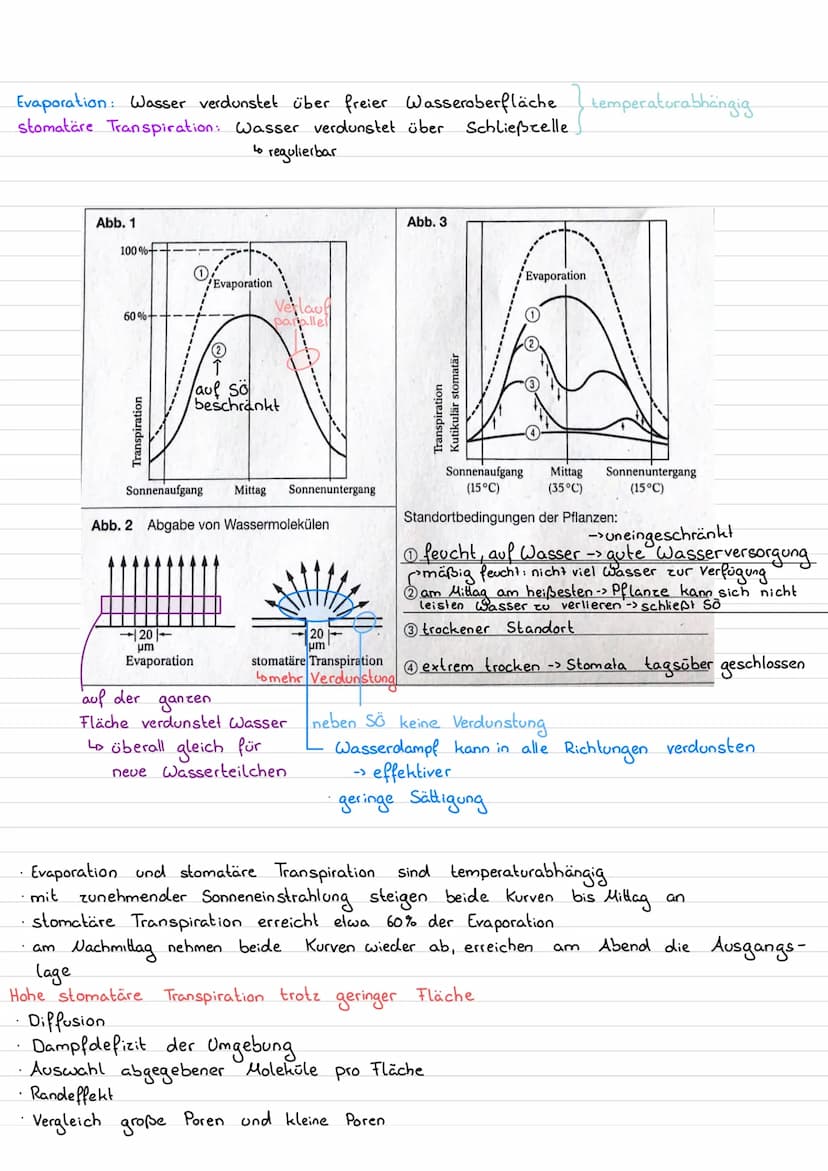 Evaporation: Wasser verdunstet über freier Wasseroberfläche
stomatäre Transpiration: Wasser verdunstet über Schließzelle
temperaturabhängig
↳ regulierbar
Abb. 1
100 %
60 %
① Evaporation
②
Verlauf
parallel
auf SÖ
beschränkt
Transpiration
Sonnenaufgang Mittag Sonnenuntergang
Abb. 3
Evaporation
①
②
③
④
Transpiration
Kutikulär stomatär
Sonnenaufgang Mittag Sonnenuntergang
(15°C) (35°C) (15°C)
Abb. 2 Abgabe von Wassermolekülen
20
µm
Evaporation
20
µm
stomatäre Transpiration
↳ mehr Verdunstung
Standortbedingungen der Pflanzen:
-> uneingeschränkt
① feucht, auf Wasser -> gute Wasserversorgung
mäßig feucht: nicht viel Wasser zur Verfügung
② am Mittag am heißesten -> Pflanze kann sich nicht
leisten Wasser zu verlieren -> schließt SÖ
③ trockener Standort
④ extrem trocken -> Stomata tagsüber geschlossen
auf der ganzen
Fläche verdunstet Wasser
↳ überall gleich für
neue Wasserteilchen
neben SÖ keine Verdunstung
Wasserdampf kann in alle Richtungen verdunsten
-> effektiver
· geringe Sättigung
· Evaporation und stomatäre Transpiration sind temperaturabhängig
· mit zunehmender Sonneneinstrahlung steigen beide Kurven bis Mittag an
· stomatäre Transpiration erreicht etwa 60% der Evaporation
· am Nachmittag nehmen beide Kurven wieder ab, erreichen am Abend die Ausgangs-
lage
Hohe stomatäre Transpiration trotz geringer Fläche
· Diffusion
· Dampfdefizit der Umgebung
· Auswahl abgegebener Moleküle pro Fläche
· Randeffekt
· Vergleich große Poren und kleine Poren